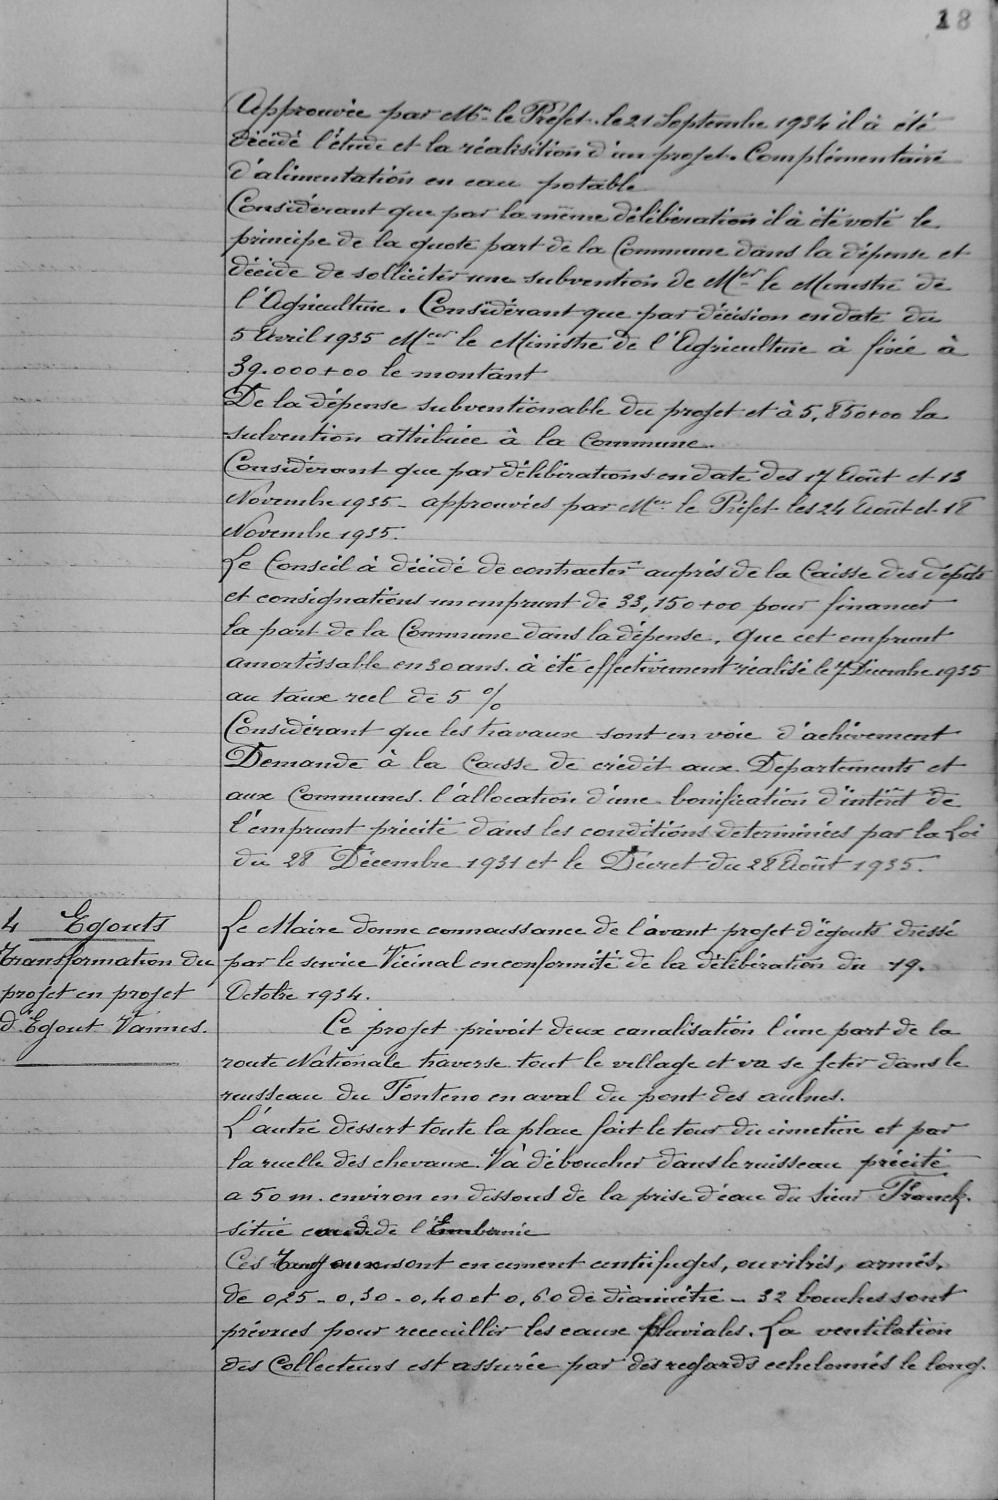 18
Approuvée par Mr le Préfet. le 21 Septembre 1934 il à été
décidé l'étude et la réalisition d'un projet. Complémentaire
d'alimentation en eau potable
Considérant que par la même délibération il à été voté le
principe de la quote part de la Commune dans la dépense et
décide de solliciter une subvention de Mer le Ministre de
l'Agriculture. Considérant que par décision en date du
5 Avril 1935 Meur le Ministre de l'Agriculture à fixée à
39.000+00 le montant
De la dépense subventionable du projet et à 5,850+00 la
subvention attribuée à la Commune.
Considérant que par délibérations en date des 17 Août et 13
Novembre 1935 - approuvées par Meur le Préfet les 24 Août et 18
Novembre 1935.
Le Conseil à décidé de contracter auprés de la Caisse des dépots
et consignations un emprunt de 33,150+00 pour financer
la part de la Commune dans la dépense, que cet emprunt
amortissable en 30 ans. à été effectivement réalisé le 7 Décembre 1935
au taux reel de 5 %
Considérant que les travaux sont en voie d'achévement
Demande à la Caisse de crédit aux Departements et
aux Communes. l'allocation d'une bonification d'intérêt de
l'emprunt précité dans les conditions determinées par la Loi
du 28 Décembre 1931 et le Décret du 28 Août 1935.
4 Egouts
Transformation du
projet en projet
d'Egout Vannes.
Le Maire donne connaissance de l'avant projet d'égouts dressé
par le service Vicinal en conformité de la délibération du 19.
Octobre 1934.
Ce projet prévoit deux canalisation l'une part de la
route Nationale traverse tout le village et va se jeter dans le
ruisseau du Fonteno en aval du pont des aulnes.
L'autre dessert toute la place fait le tour du cimetière et par
la ruelle des chevaux. Và déboucher dans le ruisseau précité
a 50 m. environ en dessous de la prise d'eau du sieur Franck.
située de l'
Ces Tuyaux sont en ciment centrifugés, ou vibrés, armés,
de 0,25 - 0,30 - 0,40 et 0,60 de diamètre - 32 bouches sont
prévues pour receuillir les eaux pluviales. La ventilation
des Collecteurs est assurée par des regards echelonnés le long.